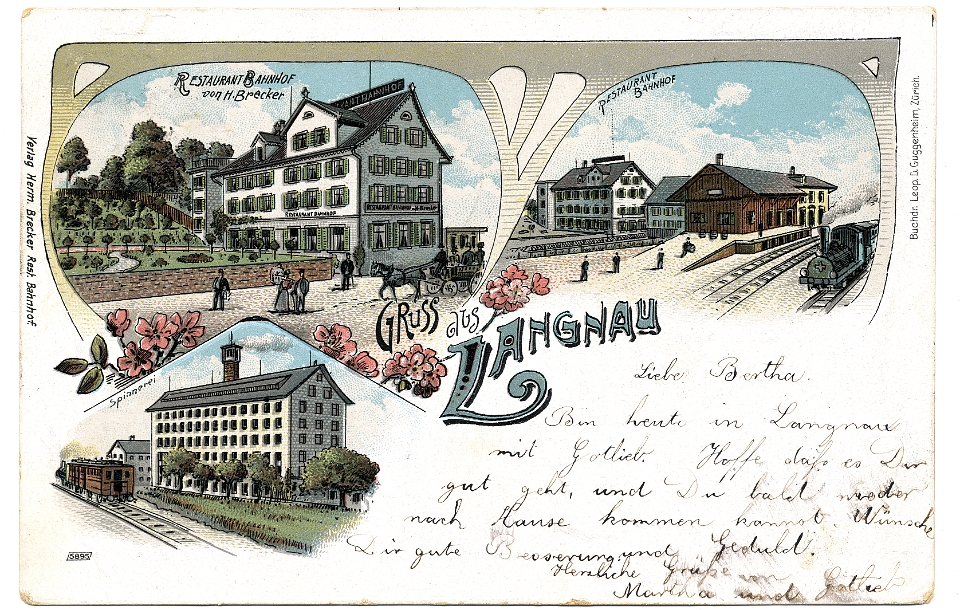 RESTAURANT BAHNHOF
von H. Brecker
RESTAURANT BAHNHOF
RESTAURANT BAHNHOF
RESTAURANT
BAHNHOF
Verlag Herm. Brecker Rest. Bahnhof.
Buchdr. Leop. D. Guggenheim, Zürich.
GRUSS aus
LANGNAU
Spinnerei
5895
Liebe Bertha.
Bin heute in Langnau
mit Gotlieb. Hoffe daß es Dir
gut geht, und Du bald wieder
nach Hause kommen kannst. Wünsche
Dir gute Besserung und Geduld.
Herzliche Grüße von
Martha und Gotlieb